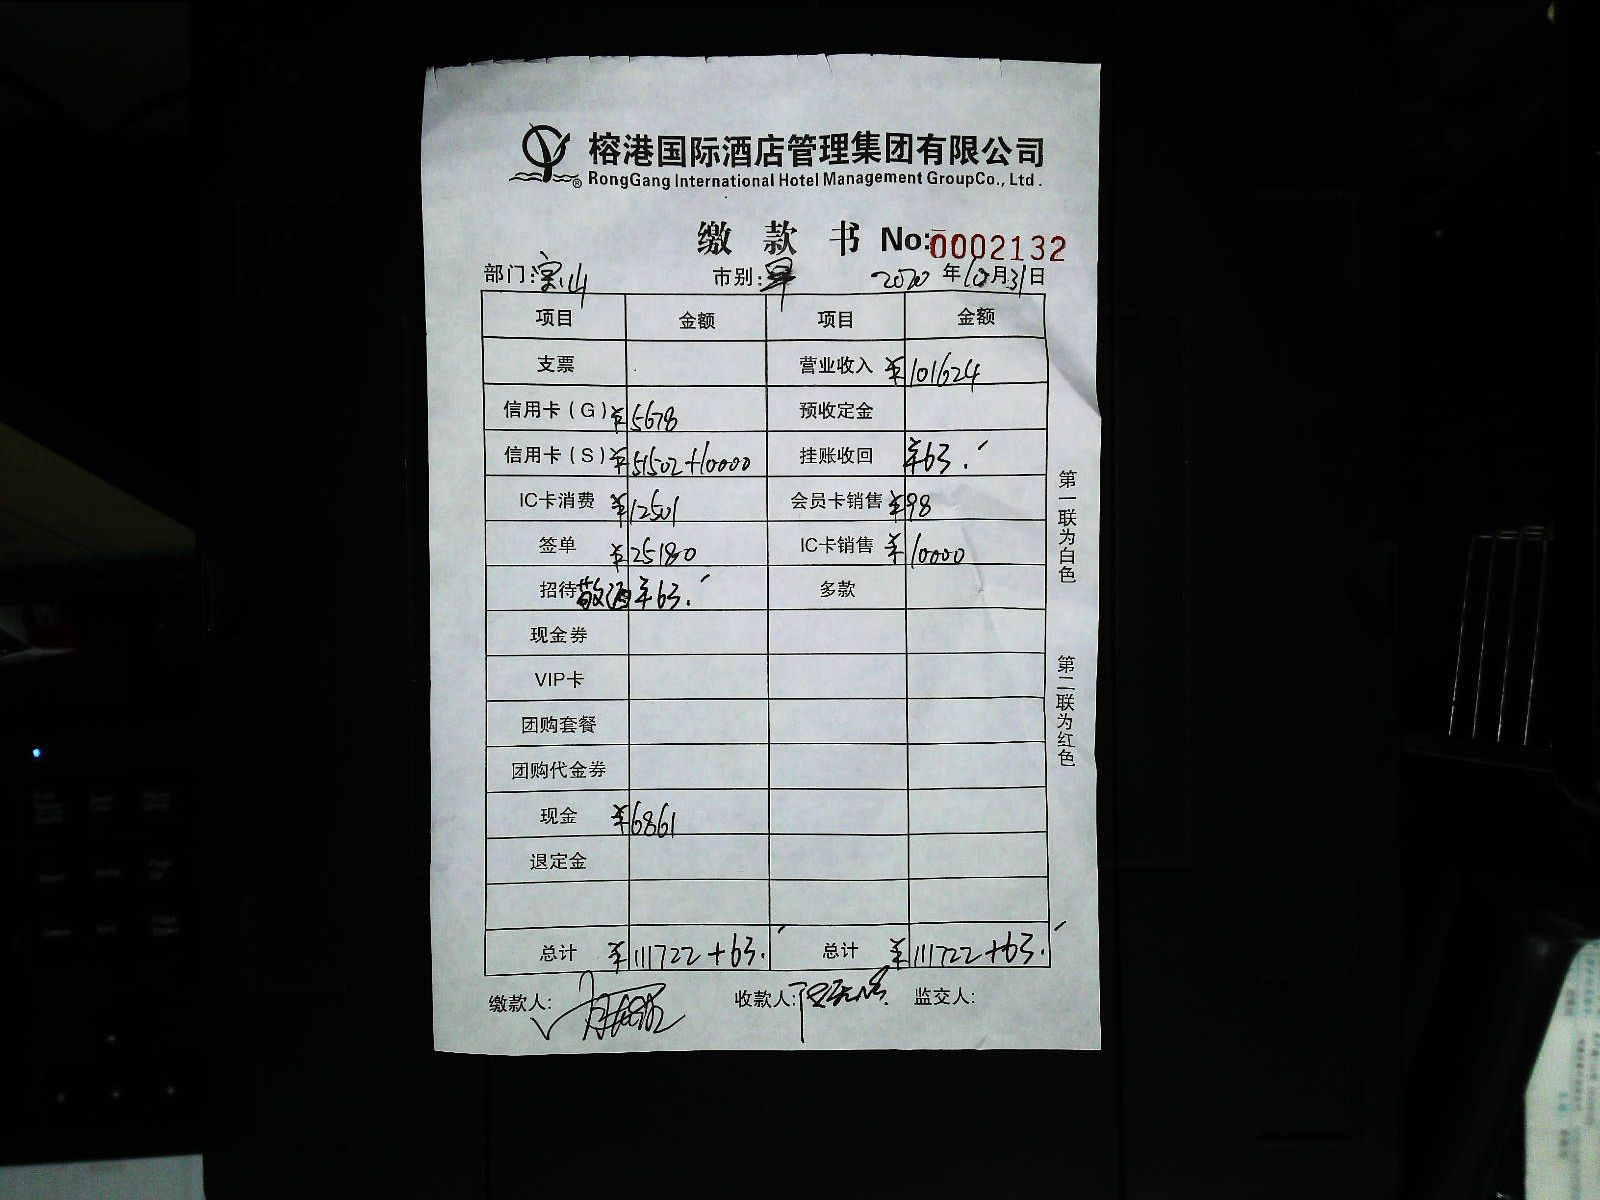 榕港国际酒店管理集团有限公司
RongGang International Hotel Management GroupCo., Ltd.
缴款书 No:0002132
部门:宝山 市别:早 2020年10月31日
项目 金额 项目 金额
支票 营业收入 ¥101624
信用卡(G) ¥5678 预收定金
信用卡(S) ¥51502+10000 挂账收回 ¥63.
IC卡消费 ¥12501 会员卡销售 ¥98
签单 ¥25180 IC卡销售 ¥10000
招待 敬酒 ¥63. 多款
现金券
VIP卡
团购套餐
团购代金券
现金 ¥6861
退定金
总计 ¥111722+63. 总计 ¥111722+63.
缴款人: 收款人: 监交人:
第一联为白色
第二联为红色